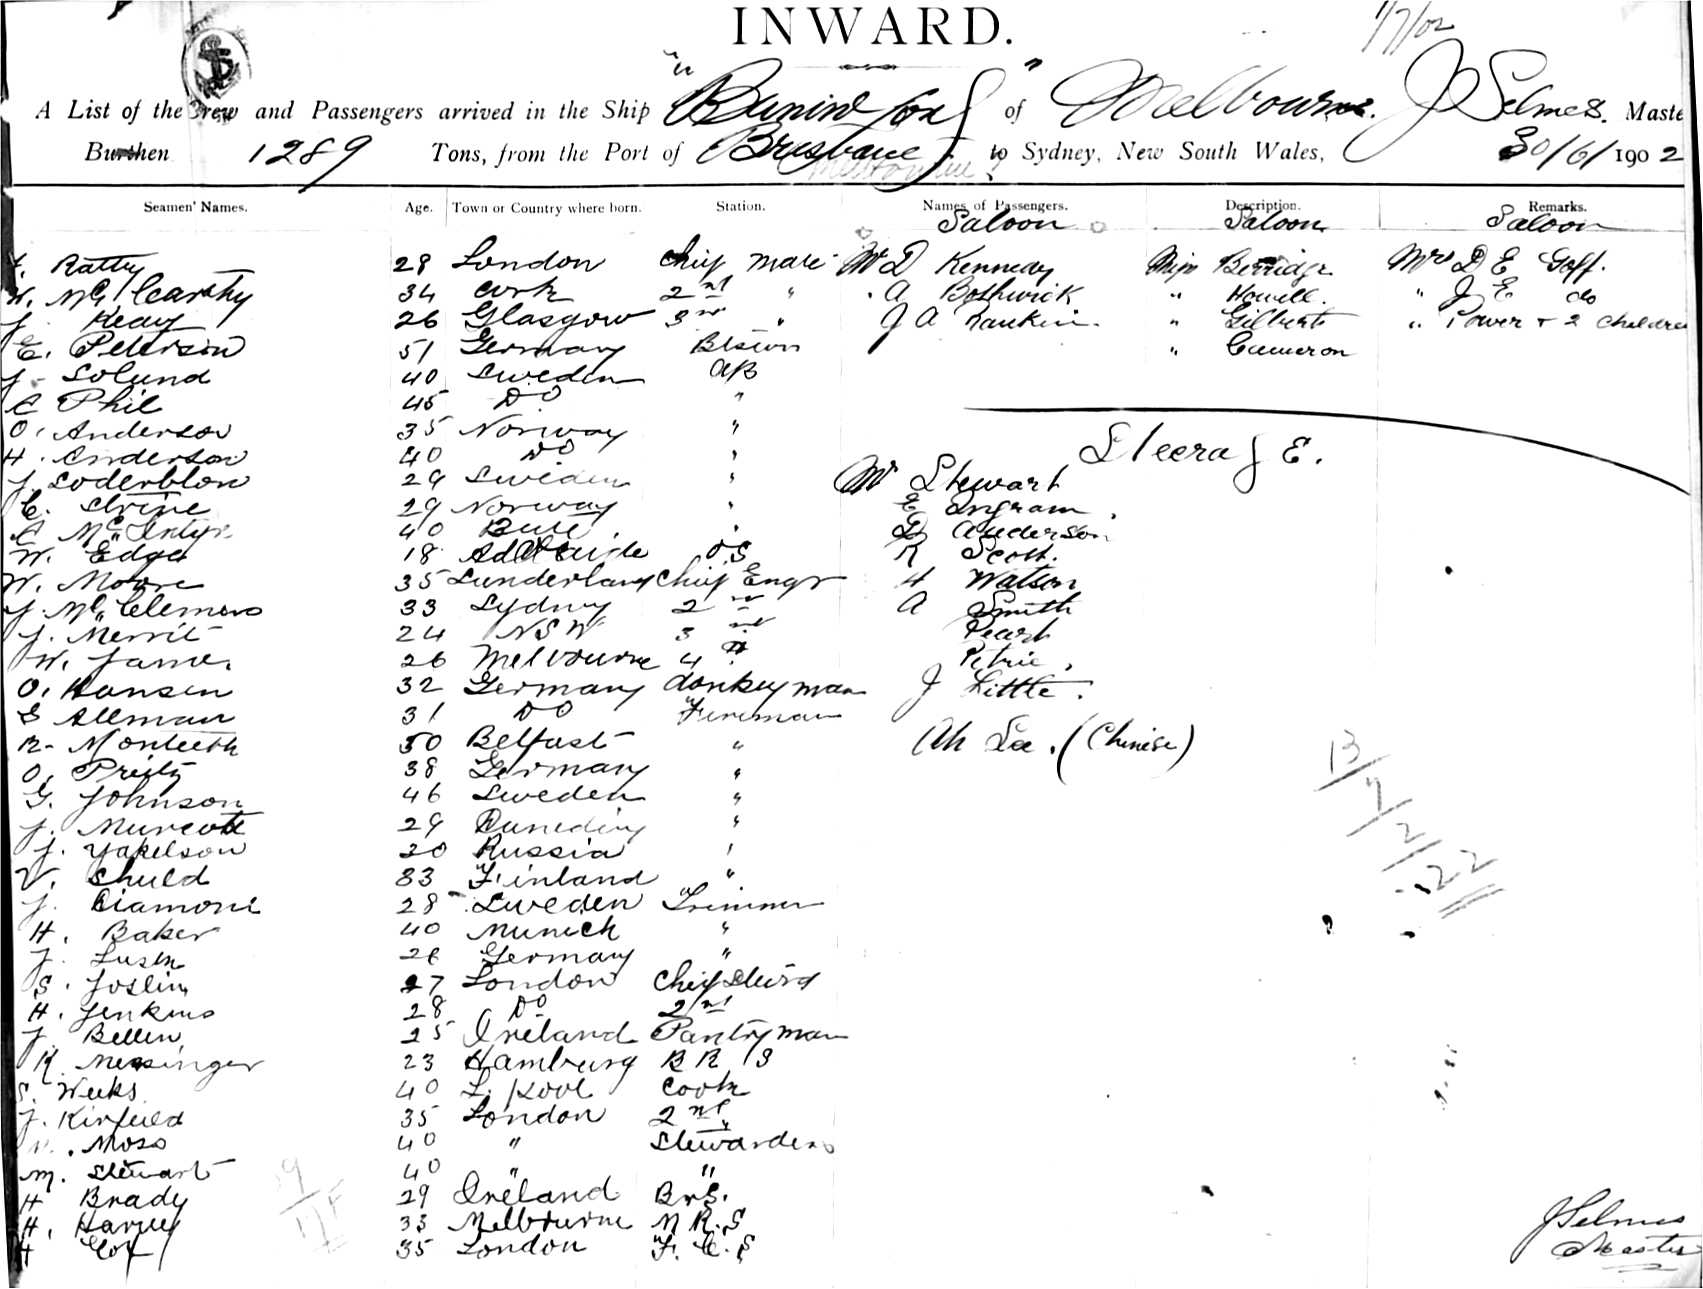 INWARD.
1/7/02
A List of the Crew and Passengers arrived in the Ship " Buninyong " of Melbourne. J Selmes. Maste
Burthen 1289 Tons, from the Port of Brisbane to Sydney, New South Wales, 30/6/1902
Seamen' Names. Age. Town or Country where born. Station. Names of Passengers. Description. Remarks.
Saloon Saloon Saloon
Ratty 28 London Chief Mate Mr D Kennedy Miss Berridge Mrs D E Goff.
W. McCarthy 34 Cork 2nd " " A Bothwick " Howell. " J E do
J. Keay 26 Glasgow 3rd " J A Rankin. " Gilberts " Power + 2 Childre
E. Peterson 51 Germany Bosun " Cameron
J. Solund 40 Sweden AB
C Phil 45 Do "
O. Anderson 35 Norway "
H. Anderson 40 Do "
SteeragE.
J. Soderblon 29 Sweden " Mr Stewart
C. Strine 29 Norway " E Ingram.
C McIntyr 40 Bute " D Anderson
W. Edga 18 Adelaide O.S R Scott.
W. Moore 35 Sunderland Chief Engr H Watson
J. McClemens 33 Sydney 2nd A Smith
J. Merrit 24 NSW 3rd Peart
W. James 26 Melbourne 4th Petrie.
O. Hansen 32 Germany donkeyman J Little.
S Alleman 31 Do Fireman
R. Monteeth 50 Belfast " Ah Lee. (Chinese)
O. Preitz 38 Germany "
G. Johnson 46 Sweden "
J. Murcott 29 Dunedin "
J. Yakelson 20 Russia "
V. Shuld 33 Finland "
13/7/2/122
J. Diamond 28 Sweden Trimmer
H. Baker 40 Munich "
J. 26 Germany "
S. Joslin 27 London Chief Stwrd
H. Jenkins 28 Do 2nd
J. Bellen 25 Ireland Pantryman
R. Messinger 23 Hamburg B R S
S. Weeks 40 L. pool Cook
J. Kirfield 35 London 2nd "
Moss 40 " Stewardess
M. Stewart 40 " "
H Brady 29 Ireland BrS.
H. Harvey 33 Melbourne M R. S
H Cox 35 London F. C. S
J Selmes
Master